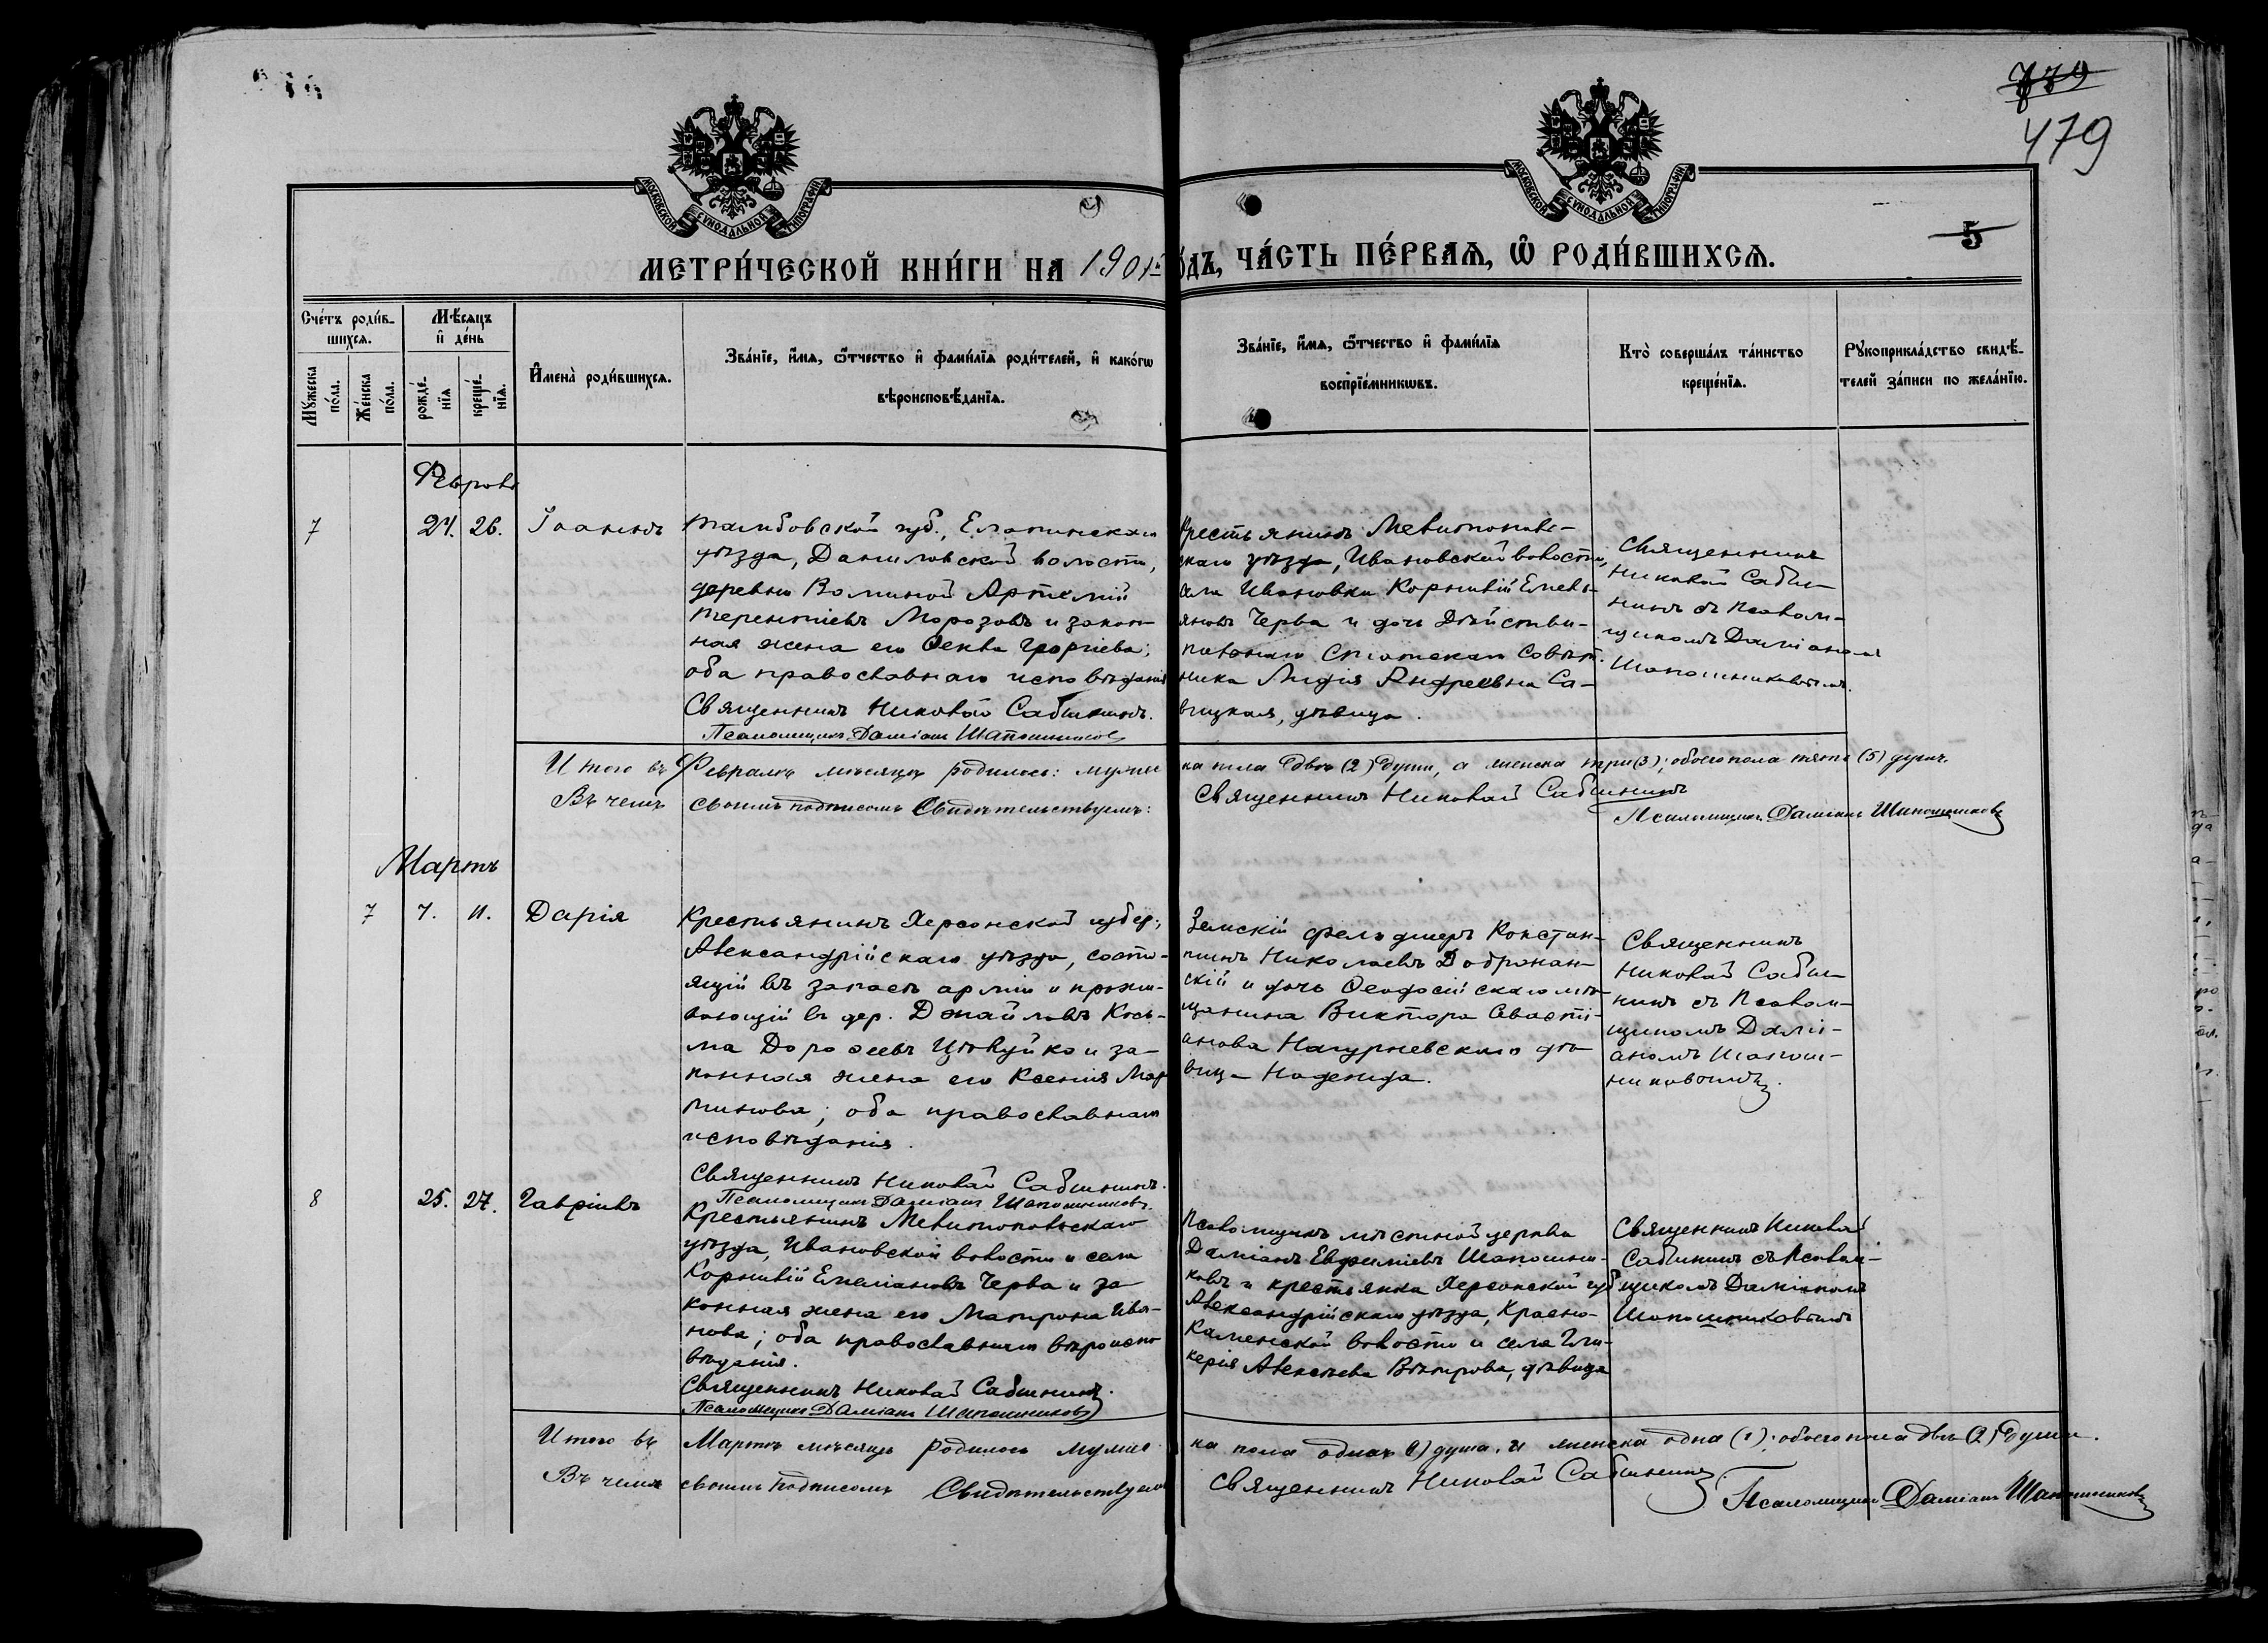 479
5
МОСКОВСКОЙ СѴНОДАЛЬНОЙ ТИПОГРАФІИ
МОСКОВСКОЙ СѴНОДАЛЬНОЙ ТИПОГРАФІИ
МЕТРИ́ЧЕСКОЙ КНИ́ГИ НА 1901й
О́ДЪ, ЧА́СТЬ ПЕ́РВАѦ, Ѡ҆ РОДИ́ВШИХСѦ.
Сче́тъ роди́в-
шихсѧ.
Мѣ́сѧцъ
и҆ де́нь
Мꙋ́жеска по́ла.
Же́нска по́ла.
рожде́-
нїѧ
креще́-
нїѧ.
И҆мена̀ роди́вшихсѧ.
Зва́нїе, и҆́мѧ, ѻ҆́тчество и҆ фами́лїѧ роди́телей, и҆ како́гѡ
вѣроисповѣ́данїѧ.
Зва́нїе, и҆́мѧ, ѻ҆́тчество и҆ фами́лїѧ
воспрїе́мникѡвъ.
Кто̀ соверша́лъ та́инство
креще́нїѧ.
Рꙋкоприкла́дство свидѣ́-
телей за́писи по жела́нїю.
Феврал
7 24. 26. Іоаннъ
Тамбовской губ., Елатинскаго
уѣзда, Даниловской волости,
деревни Артемій
Терентіевъ Морозовъ и закон-
ная жена его Ѳекла Георгіева;
оба православнаго исповѣданія
Священникъ Николай Сабининъ.
Псаломщикъ Даміанъ Шапошников
Крестьянинъ Мелитополь-
скаго уѣзда, Ивановской волости,
села Ивановки Корнилій Емель-
яновъ Черва и дочь Дѣйстви-
тельнаго Статскаго Совѣт-
ника Лидія Андреевна Са-
вицкая, дѣвица.
Священникъ
Николай Саби-
нинъ съ Псалом-
щикомъ Даміаномъ
Шапошниковымъ.
Итого въ Февралѣ мѣсяцѣ родилось: мужес
ка пола двѣ (2) души, а женска три (3); обоего пола пять (5) душъ.
Въ чемъ своимъ подписомъ Свидѣтельствуемъ:
Священникъ Николай Сабининъ
Псаломщикъ Даміанъ Шапошниковъ
Мартъ
7 7. 11. Дарія
Крестьянинъ Херсонской губер;
Александрійскаго уѣзда, состо-
ящій въ запасѣ арміи и прожи-
вающій въ дер. Джайлавъ Кось-
ма Дороѳеевъ Цѣлуйко и за-
конная жена его Ксенія Мар
тинова; оба православнаго
исповѣданія.
Священникъ Николай Сабининъ.
Псаломщикъ Даміанъ Шапошниковъ.
Земскій фельдшеръ Констан-
тинъ Николаевъ Добржан-
скій и дочь Ѳеодосійскаго мѣ-
щанина Виктора
Нагурневскаго дѣ-
вица Надежда.
Священникъ
Николай Саби-
нинъ съ Псалом-
щикомъ Дамі-
аномъ Шапош-
никовымъ.
8 25. 27. Гавріилъ
Крестьянинъ Мелитопольскаго
уѣзда, Ивановской волости и села
Корнилій Емеліановъ Черва и за
конная жена его Матрона Ива-
нова; оба православнаго вѣроиспо
вѣданія.
Священникъ Николай Сабининъ.
Псаломщикъ Даміанъ Шапошниковъ
Псаломщикъ мѣстной церкви
Даміанъ Евѳиміевъ Шапошни-
ковъ и крестьянка Херсонской губ
Александрійскаго уѣзда, Красно-
Каменской волости и села Гли-
керія Алексѣева Вѣтрова, дѣвица
Священникъ Николай
Сабининъ съ Псалом-
щикомъ Даміаномъ
Шапошниковымъ
Итого въ Мартѣ мѣсяцѣ родилось мужес
ка пола одна (1) душа, и женска одна (1); обоего пола двѣ (2) души.
Въ чемъ своимъ подписомъ Свидѣтельствуемъ
Священникъ Николай Сабининъ.
Псаломщикъ Даміанъ Шапошниковъ